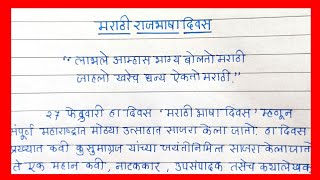 मराठी राजभाषा दिवस
“लाभले आम्हास भाग्य बोलतो मराठी
जाहलो खरेच धन्य ऐकतो मराठी.”
२७ फेब्रुवारी हा दिवस ‘मराठी भाषा दिवस’ म्हणून
संपूर्ण महाराष्ट्रात मोठ्या उत्साहात साजरा केला जातो. हा दिवस
प्रख्यात कवी कुसुमाग्रज यांच्या जयंतीनिमित्त साजरा केला जातो
ते एक महान कवी, नाटककार, उपसंपादक तसेच कथालेखक